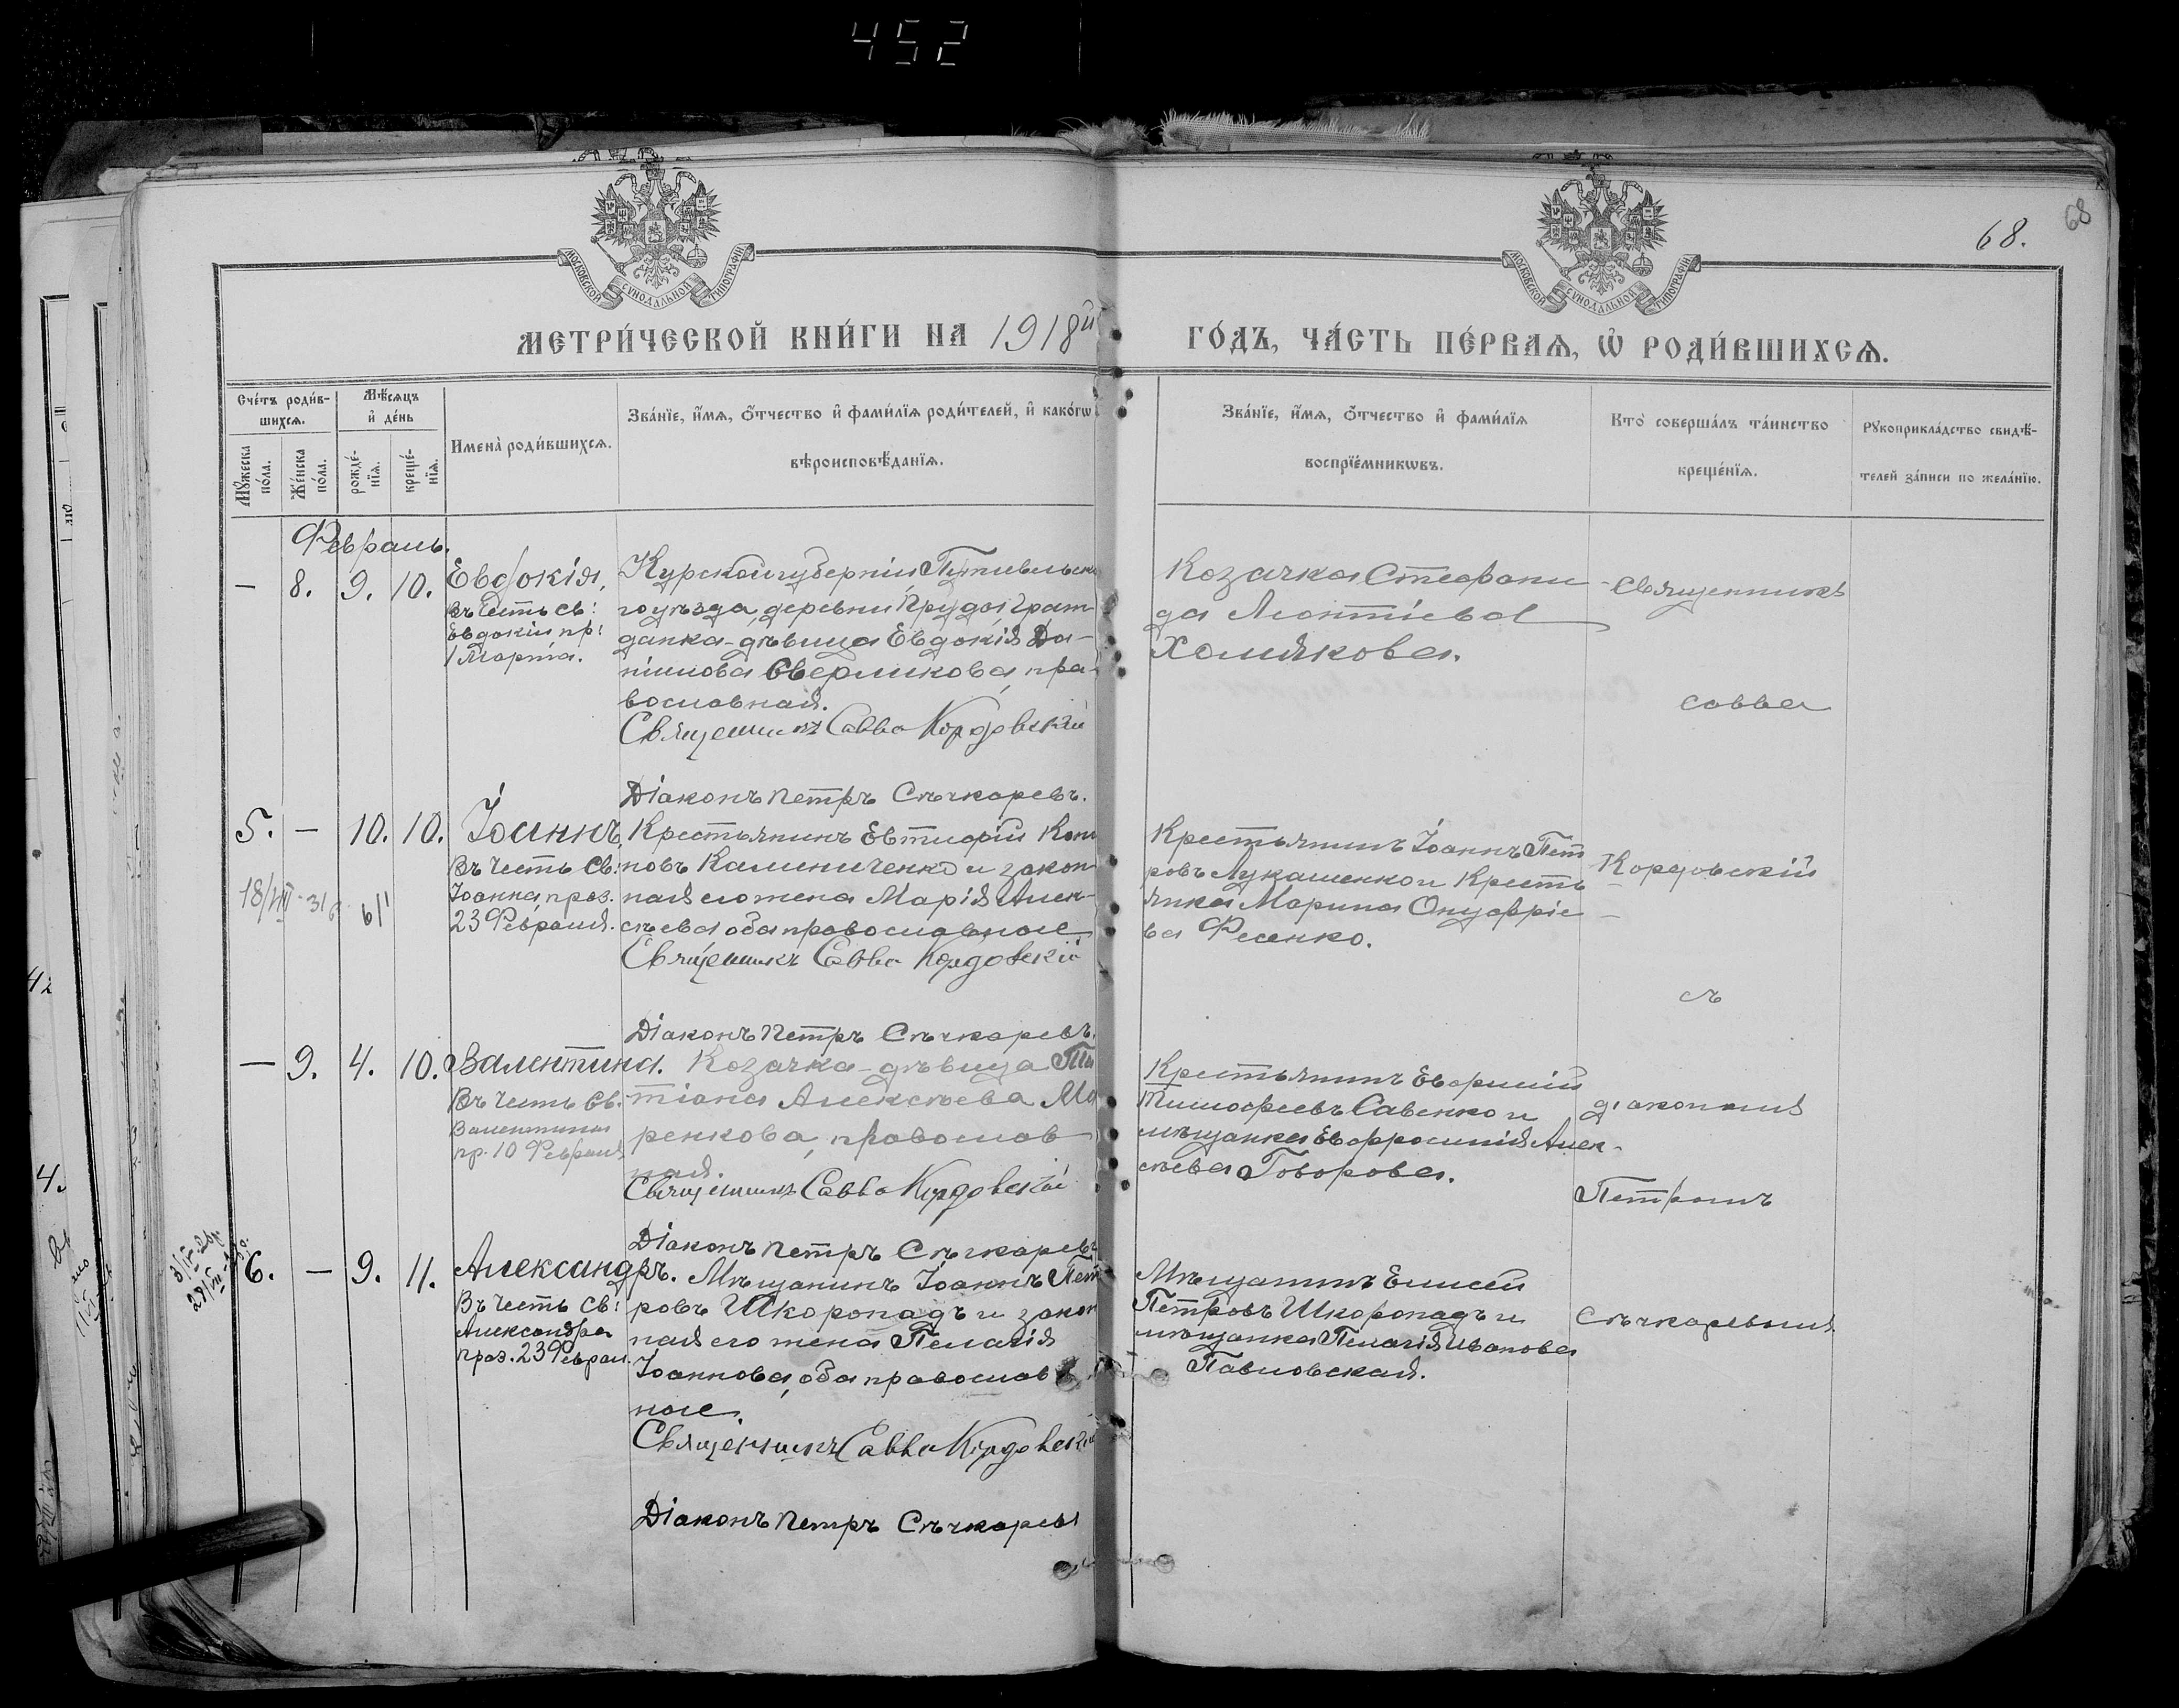 452
МОСКОВСКОЙ СУНОДАЛЬНОЙ ТИПОГРАФІИ
МОСКОВСКОЙ СУНОДАЛЬНОЙ ТИПОГРАФІИ
68.
68
МЕТРИ́ЧЕСКОЙ КНИ́ГИ НА 1918й
ГО́ДЪ, ЧА́СТЬ ПЕ́РВАѦ, Ѡ҆ РОДИ́ВШИХСѦ.
Сче́тъ роди́в-
шихсѧ.
Мꙋ́жеска
по́ла.
Же́нска
по́ла.
Мѣ́сѧцъ
и҆ де́нь
рожде́-
нїѧ.
креще́-
нїѧ.
Имена̀ роди́вшихсѧ.
Зва́нїе, и҆́мѧ, ѻ҆́тчество и҆ фами́лїѧ роди́телей, и҆ како́гѡ
вѣроисповѣ́данїѧ.
Зва́нїе, и҆́мѧ, ѻ҆́тчество и҆ фами́лїѧ
воспрїе́мникѡвъ.
Кто̀ соверша́лъ та́инство
креще́нїѧ.
Рꙋкоприкла́дство свидѣ́-
телей за́писи по жела́нїю.
Февраль.
— 8. 9. 10.
Евдокія,
въ честь св:
Евдокіи пр:
1 Марта.
Курской губерніи Путивльска
го уѣзда, деревни Пруда граж-
данка-дѣвица Евдокія Да-
ніилова Сверликова, пра-
вославная.
Священникъ Савва Кордовскій
Діаконъ Петръ Сѣчкаревъ.
Козачка Стефани-
да Леонтіева
Холякова.
Священникъ
Савва
5. — 10. 10.
Іоаннъ,
Въ честь Св:
Іоанна, праз.
23 Февраля.
Крестьянинъ Евтифій
новъ Калениченко и закон-
ная его жена Марія Алек-
сѣева оба православные
Священникъ Савва Кордовскій
Діаконъ Петръ Сѣчкаревъ.
Крестьянинъ Іоаннъ Пет
ровъ Лукашенко и Кресть-
янка Марина Онуфріе-
ва Фесенко.
Кордовскій
съ
18/VII
— 9. 4. 10.
Валентина.
Въ честь Св.
Валентины
пр. 10 Февраля
Козачка-дѣвица Та
тіана Алексѣева Ма
ренкова, православ
ная.
Священникъ Савва Кордовскій
Діаконъ Петръ Сѣчкаревъ
Крестьянинъ Евфимій
Тимофеевъ Савенко и
мѣщанка Евфросинія Алек-
сѣева Говорова.
діакономъ
Петромъ
6. — 9. 11.
Александръ.
Въ честь Св:
Александра
праз. 23 Феврал.
Мѣщанинъ Іоаннъ Пет
ровъ Шкоропадъ и закон
ная его жена Пелагія
Іоаннова, оба православ
ные.
Священникъ Савва Кордовскій
Діаконъ Петръ Сѣчкаревъ
Мѣщанинъ Елисей
Петровъ Шкоропадъ и
мѣщанка Пелагія Иванова
Павловская.
Сѣчкаревымъ